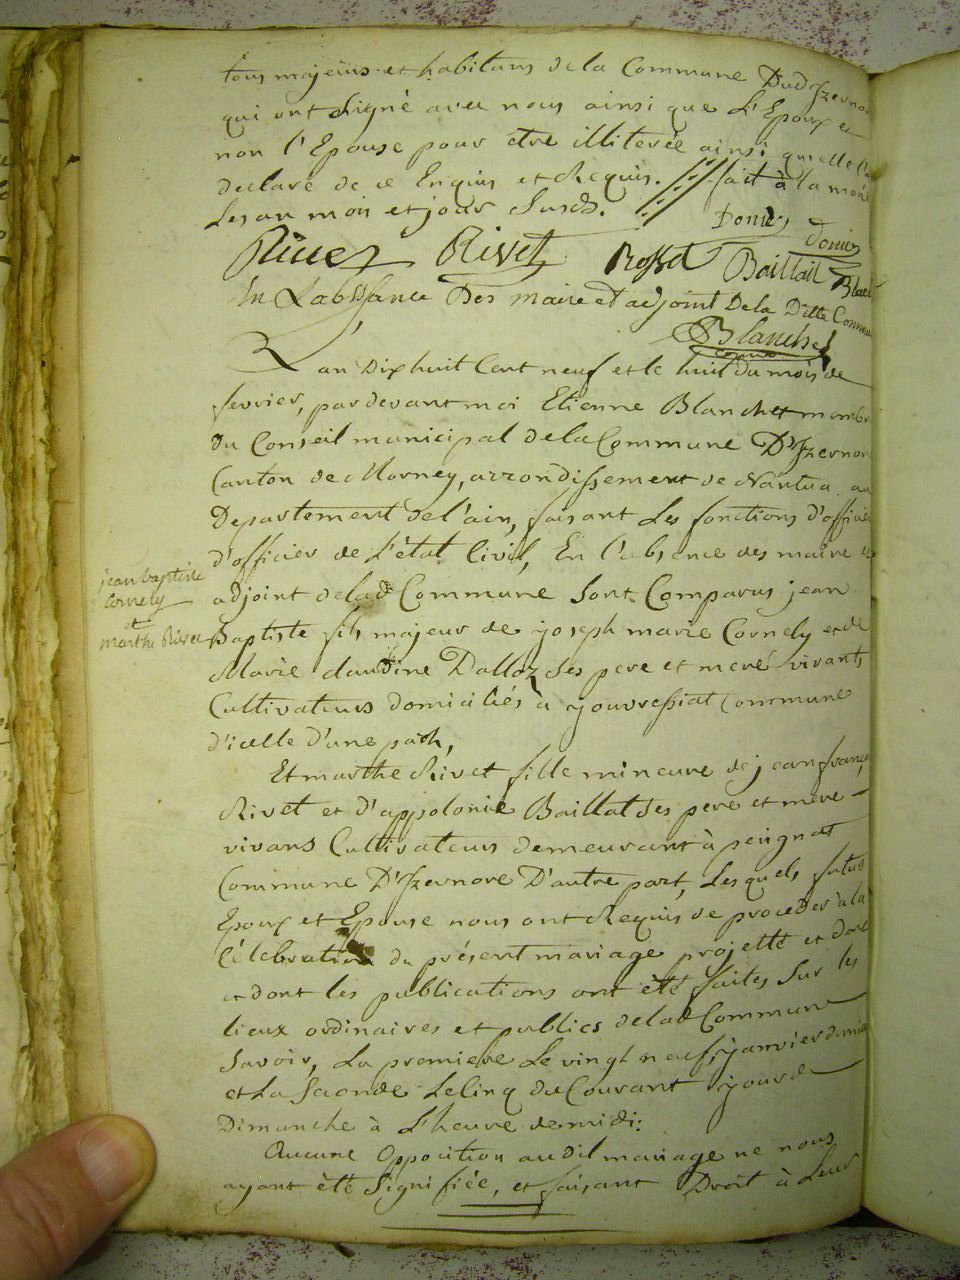 tous majeurs et habitans de la Commune Dud Izernore
qui ont signé avec nous ainsi que L'Epoux et
non l'Epouse pour etre illiterée ainsi quelle l'a
declaré de ce Enquis et Requis. fait à la mairie
Les an mois et jour Susds.
Donier Donier
Rivet Rivet Rosset Baillait
In Labssance Des maire et adjoint Dela Ditte Commune
Blanchet
L'an Dix huit Cent neuf et le huit du mois de
fevrier, par devant moi Etienne Blanchet membre
du Conseil municipal de la Commune D'Izernore
Canton de Morney, arrondissement de Nantua au
Departement de l'ain, faisant Les fonctions d'officier
d'officier de L'état Civil, En l'absence des maire et
adjoint de lade Commune Sont Comparus jean
Baptiste fils majeur de joseph marie Cornely et de
Marie claudine Dalloz Ses pere et mere vivants
Cultivateurs domiciliés à youvressiat Commune
d'icelle D'une part,
jean baptiste
Cornely
et
marthe Rivet
Et marthe Rivet fille mineure de jean françois
Rivet et d'appolonie Baillat Ses pere et mere
vivans Cultivateurs demeurant à perignat
Commune D'Izernore D'autre part, Lesquels futurs
Epoux et Epouse nous ont Requis de proceder à la
Célebration du présent mariage projetté et dont
et dont les publications ont été faites Sur les
lieux ordinaires et publics de lade Commune
Savoir, La premiere Le vingt neuf janvier dernier
et La Seconde Le Cinq du Courant jour de
Dimanche à L'heure de midi:
Aucune Opposition audit mariage ne nous
ayant été Signifiée, et faisant Droit à Leur